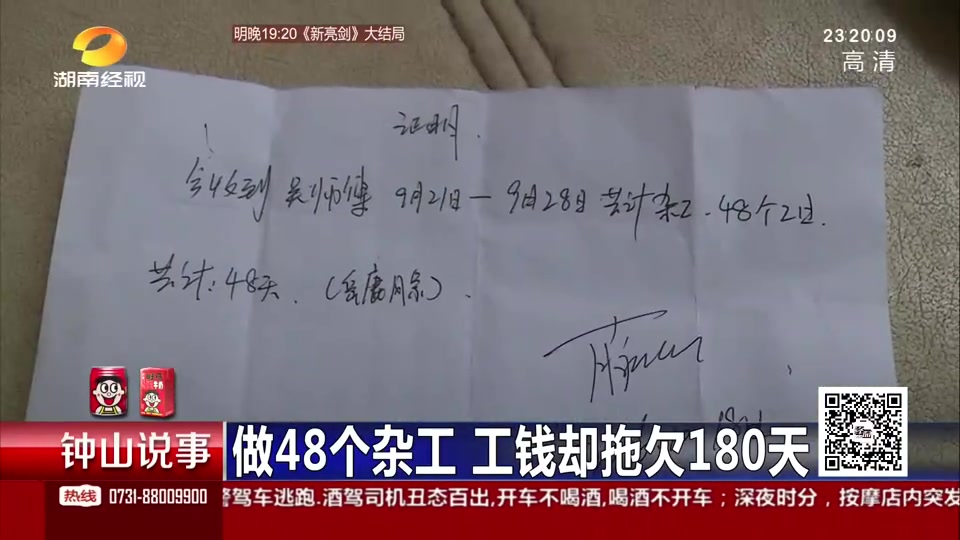 明晚19:20《新亮剑》大结局
23:20:09
湖南经视
高清
证明.
今收到 吴师傅 9月21日—9月28日 共计杂工.48个工日.
共计:48天.
钟山说事
做48个杂工 工钱却拖欠180天
热线 0731-88009900
警驾车逃跑.酒驾司机丑态百出,开车不喝酒,喝酒不开车；深夜时分，按摩店内突发